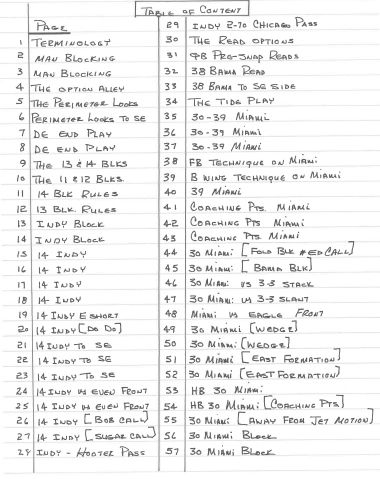 TABLE OF CONTENT
PAGE
1 TERMINOLOGY
2 MAN BLOCKING
3 MAN BLOCKING
4 THE OPTION ALLEY
5 THE PERIMETER LOOKS
6 PERIMETER LOOKS TO SE
7 DE END PLAY
8 DE END PLAY
9 THE 13 & 14 BLKS
10 THE 11 & 12 BLKS.
11 14 BLK RULES
12 13 BLK. RULES
13 INDY BLOCK
14 INDY BLOCK
15 14 INDY
16 14 INDY
17 14 INDY
18 14 INDY
19 14 INDY E SHORT
20 14 INDY [DO DO]
21 14 INDY TO SE
22 14 INDY TO SE
23 14 INDY TO SE
24 14 INDY VS EVEN FRONT
25 14 INDY VS EVEN FRONT
26 14 INDY [BOB CALL]
27 14 INDY [SUGAR CALL]
28 INDY - HOOTER PASS
29 INDY 2-70 CHICAGO PASS
30 THE READ OPTIONS
31 QB PRE-SNAP READS
32 38 BAMA READ
33 38 BAMA TO SE SIDE
34 THE TIDE PLAY
35 30-39 MIAMI
36 30-39 MIAMI
37 30-39 MIAMI
38 FB TECHNIQUE ON MIAMI
39 B WING TECHNIQUE ON MIAMI
40 39 MIAMI
41 COACHING PTS. MIAMI
42 COACHING PTS MIAMI
43 COACHING PTS MIAMI
44 30 MIAMI [FOLD BLK #ED CALL]
45 30 MIAMI [BAMA BLK]
46 30 MIAMI VS 3-3 STACK
47 30 MIAMI VS 3-3 SLANT
48 MIAMI VS EAGLE FRONT
49 30 MIAMI [WEDGE]
50 30 MIAMI [WEDGE]
51 30 MIAMI [EAST FORMATION]
52 30 MIAMI [EAST FORMATION]
53 HB 30 MIAMI
54 HB 30 MIAMI [COACHING PTS]
55 30 MIAMI [AWAY FROM JET MOTION]
56 30 MIAMI BLOCK
57 30 MIAMI BLOCK